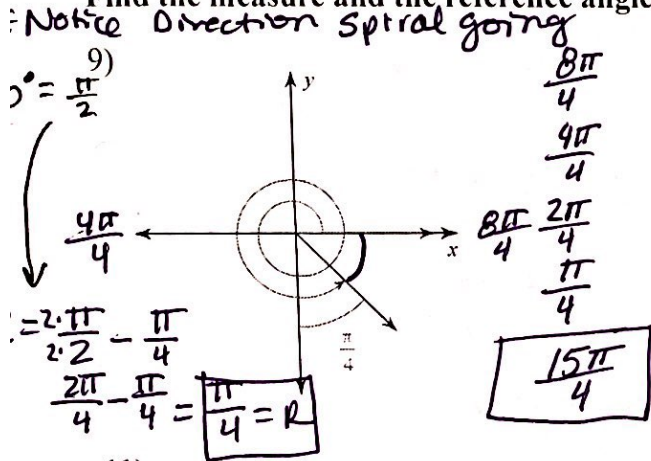 Find the measure and the reference angle
Notice Direction Spiral going
9)
° = π/2
y
x
4π/4
8π/4
8π/4
4π/4
2π/4
π/4
15π/4
π/4
= 2·π/2·2 - π/4
2π/4 - π/4 = π/4 = R